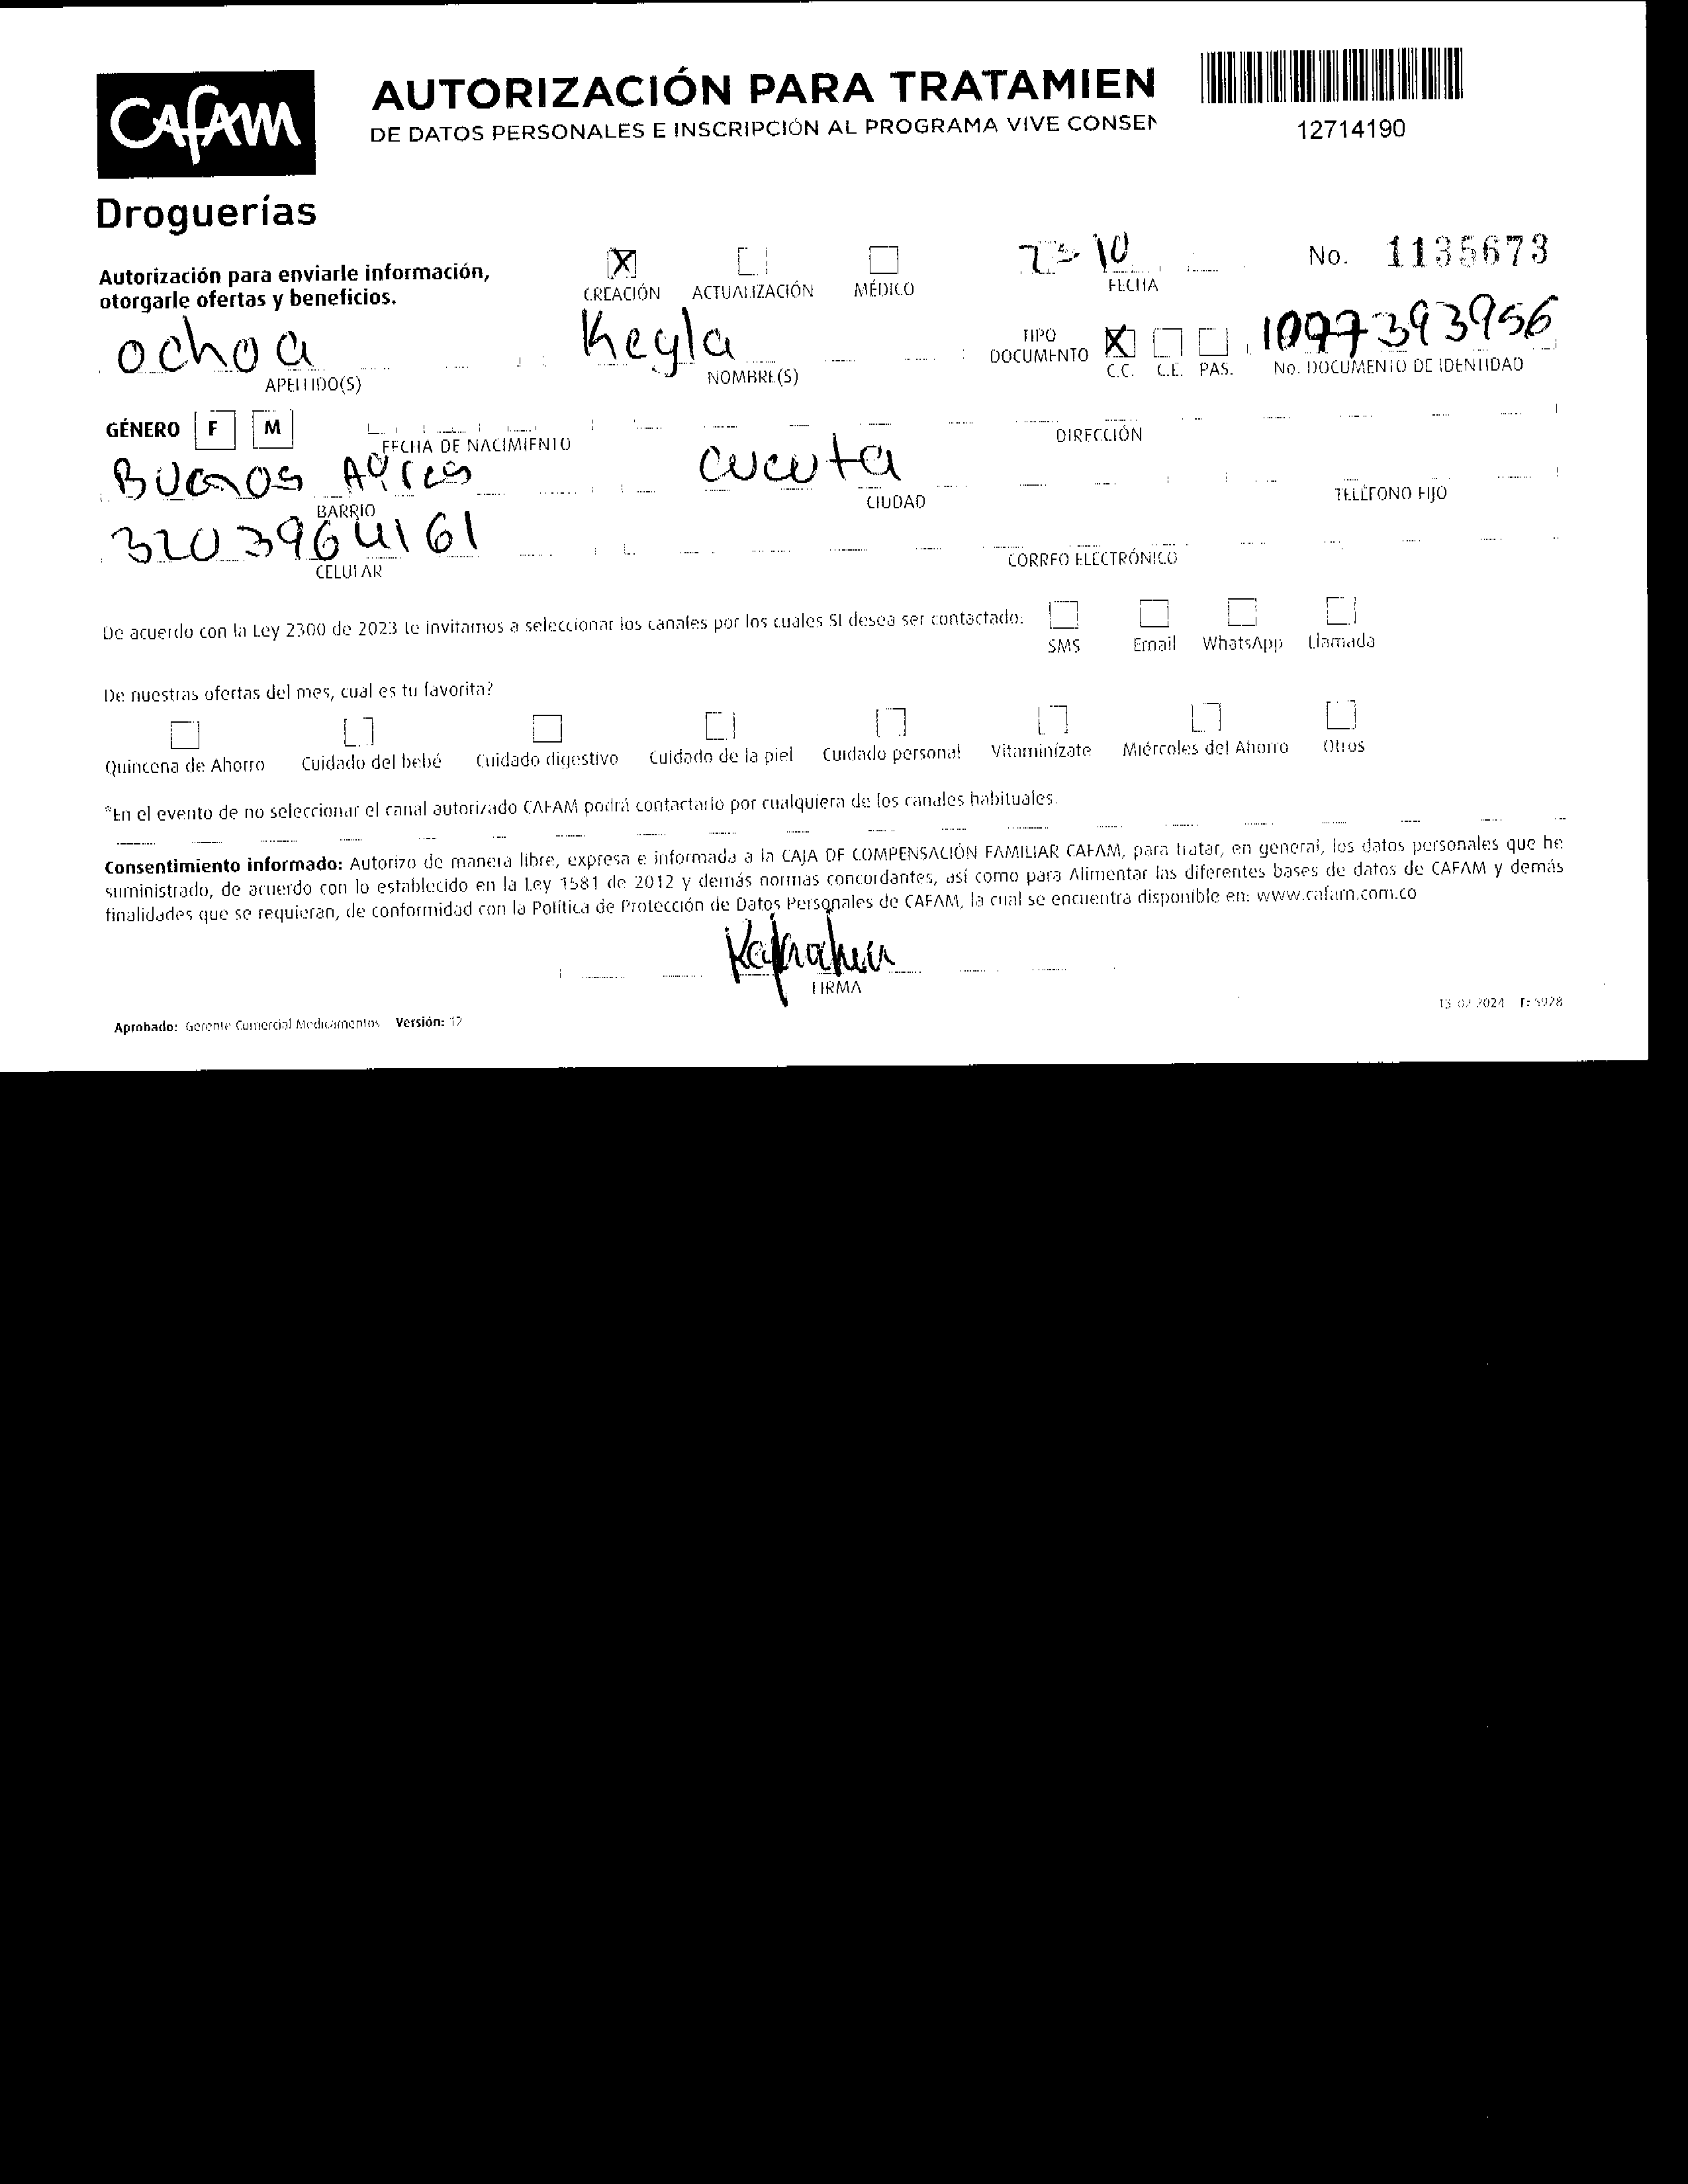 CAFAM
Droguerías
AUTORIZACIÓN PARA TRATAMIEN
DE DATOS PERSONALES E INSCRIPCIÓN AL PROGRAMA VIVE CONSEN
12714190
Autorización para enviarle información,
otorgarle ofertas y beneficios.
X CREACIÓN ACTUALIZACIÓN MÉDICO
10
FECHA
No. 1135673
ochoa
APELLIDO(S)
Keyla
NOMBRE(S)
TIPO DOCUMENTO X C.C. C.E. PAS.
1097393956
No. DOCUMENTO DE IDENTIDAD
GÉNERO F M
FECHA DE NACIMIENTO
DIRECCIÓN
Buenos Ayres
BARRIO
cucuta
CIUDAD
TELÉFONO FIJO
3203964161
CELULAR
CORREO ELECTRÓNICO
De acuerdo con la Ley 2300 de 2023 te invitamos a seleccionar los canales por los cuales SI desea ser contactado:
SMS Email WhatsApp Llamada
De nuestras ofertas del mes, cual es tu favorita?
Quincena de Ahorro Cuidado del bebé Cuidado digestivo Cuidado de la piel Cuidado personal Vitaminízate Miércoles del Ahorro Otros
*En el evento de no seleccionar el canal autorizado CAFAM podrá contactarlo por cualquiera de los canales habituales.
Consentimiento informado: Autorizo de manera libre, expresa e informada a la CAJA DE COMPENSACIÓN FAMILIAR CAFAM, para tratar, en general, los datos personales que he
suministrado, de acuerdo con lo establecido en la Ley 1581 de 2012 y demás normas concordantes, así como para Alimentar las diferentes bases de datos de CAFAM y demás
finalidades que se requieran, de conformidad con la Política de Protección de Datos Personales de CAFAM, la cual se encuentra disponible en: www.cafam.com.co
FIRMA
Aprobado: Gerente Comercial Medicamentos Versión: 12
13 02 2024 F: 5928